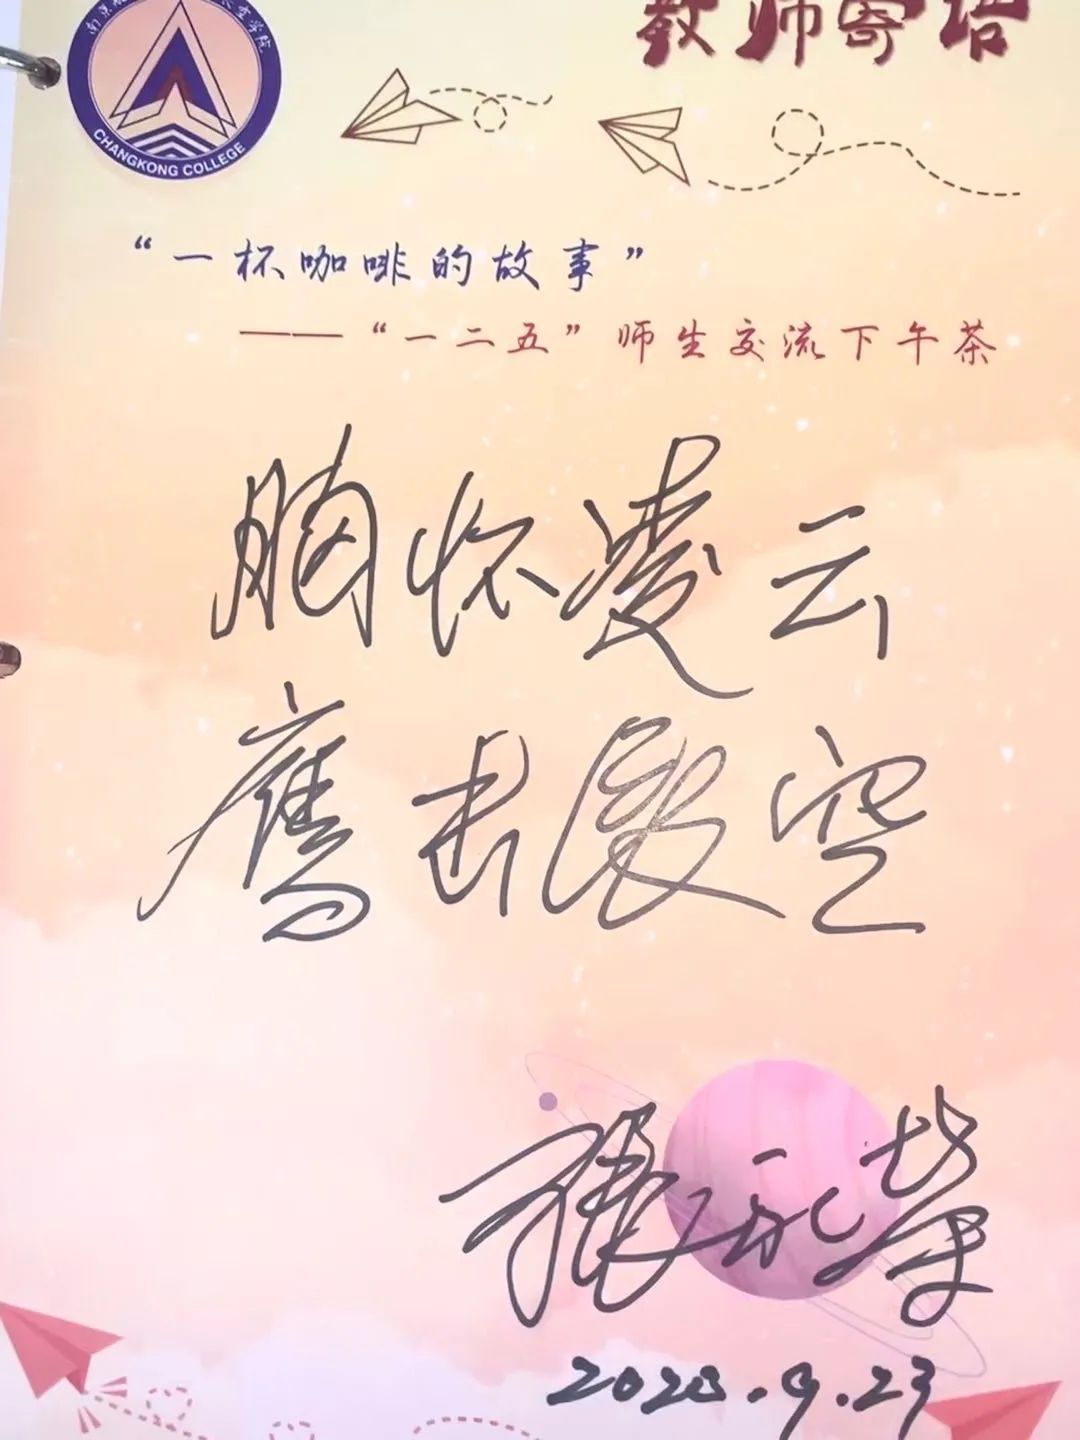 教师寄语
CHANGKONG COLLEGE
“一杯咖啡的故事”
——“一二五”师生交流下午茶
胸怀凌云
鹰击 空
2020.9.23